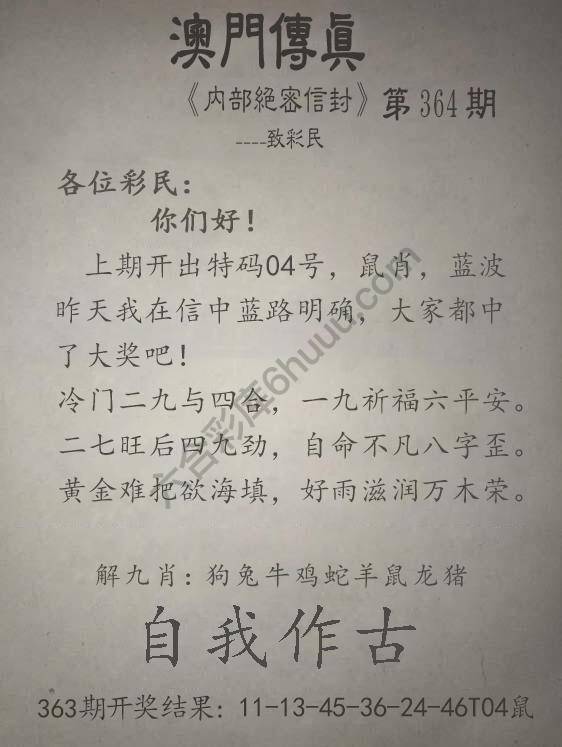 澳門傳眞
《内部絕密信封》第364期
----致彩民
各位彩民：
你们好！
上期开出特码04号，鼠肖，蓝波
昨天我在信中蓝路明确，大家都中
了大奖吧！
冷门二九与四合，一九祈福六平安。
二七旺后四九劲，自命不凡八字歪。
黄金难把欲海填，好雨滋润万木荣。
解九肖：狗兔牛鸡蛇羊鼠龙猪
自我作古
363期开奖结果：11-13-45-36-24-46T04鼠
六合彩库6huuu.com